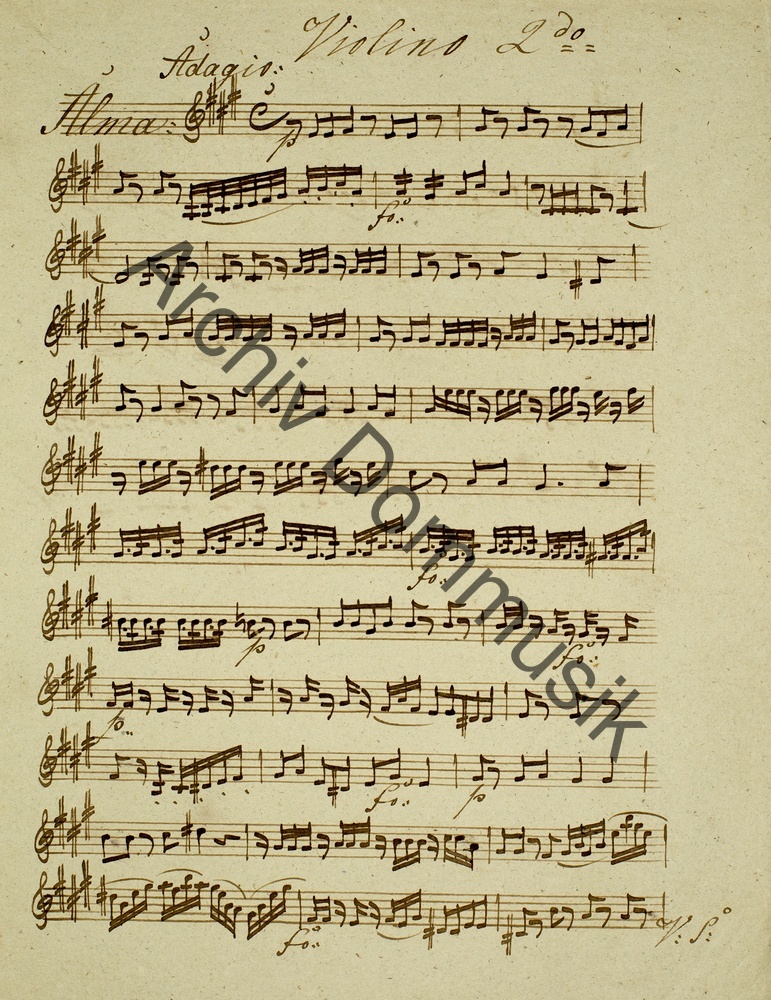 Violino 2do
Adagio:
Alma:
p
fo:
fo:
p
fo:
p
fo:
p
fo:
V: S:
Archiv Dommusik